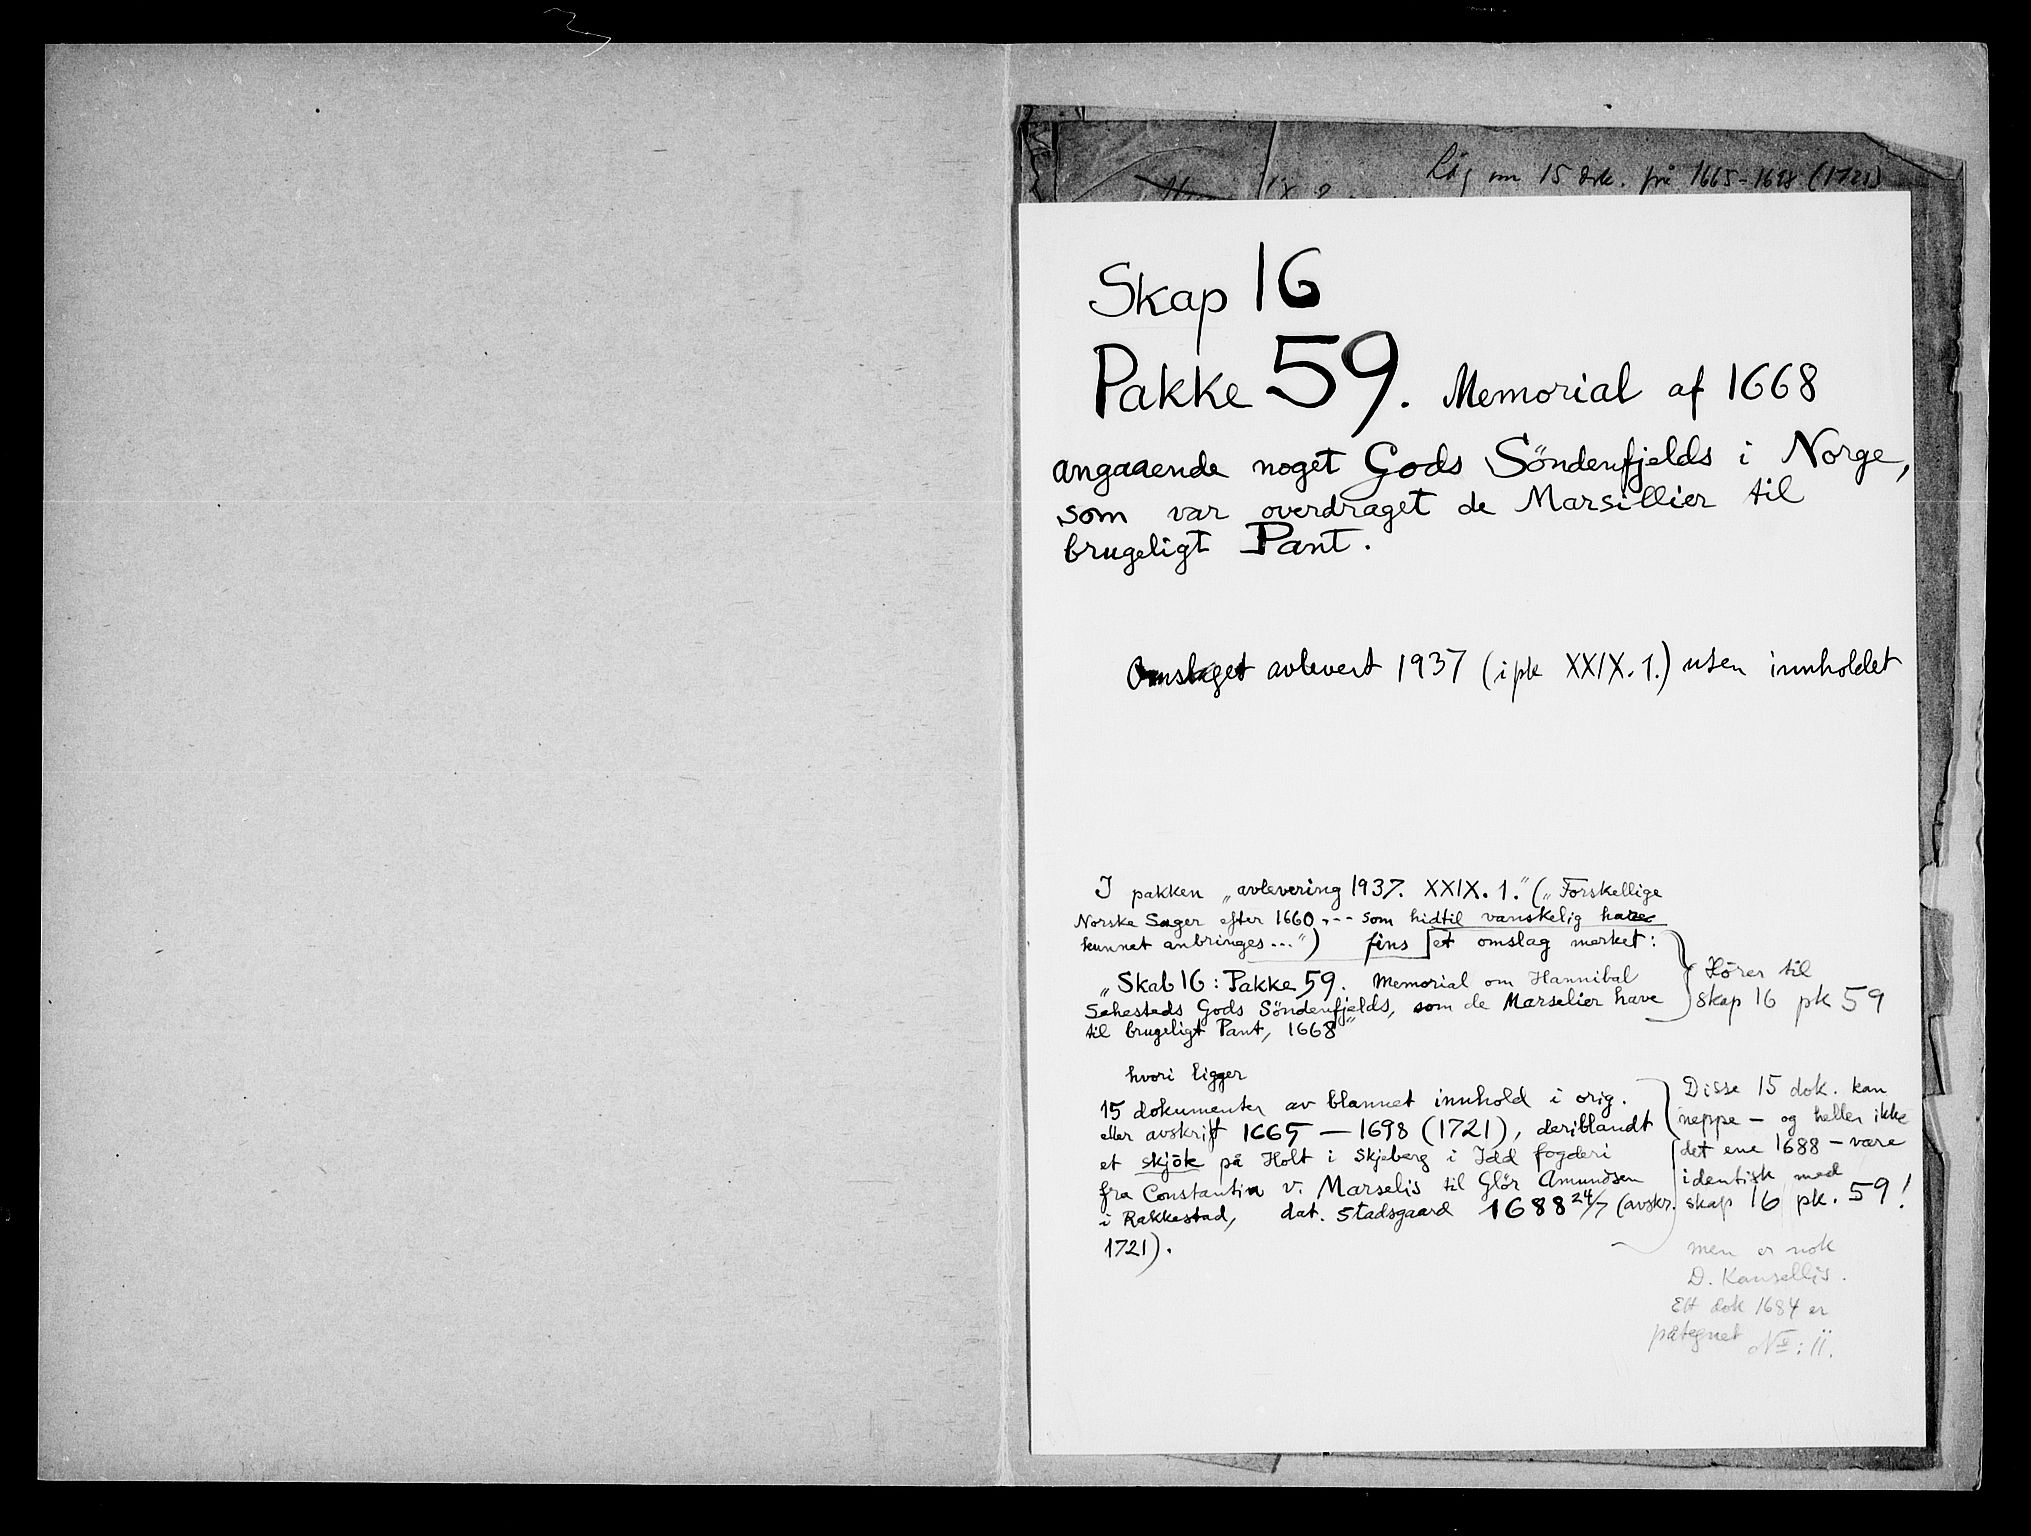 Låg om 15 dok. frå 1665-1698 (1721)
Skap 16
Pakke 59. Memorial af 1668
angaaende noget Gods Söndenfjelds i Norge,
som var overdraget de Marsillier til
brugeligt Pant.
Omslaget avlevert 1937 (i pk XXIX.1.) uten innholdet
I pakken „avlevering 1937. XXIX.1.” („Forskellige
Norske Sager efter 1660, --- som hidtil vanskelig have
kunnet anbringes...”) fins et omslag merket:
„Skab 16: Pakke 59. Memorial om Hannibal
Sehesteds Gods Söndenfjelds, som de Marselier have
til brugeligt Pant, 1668”
Hörer til
skap 16 pk 59
hvori ligger
15 dokumenter av blannet innhold i orig.
eller avskrift 1665 — 1698 (1721), deriblandt
et skjök på Holt i Skjeberg i Idd fogderi
fra Constantin v. Marselis til Glör Amundsen
i Rakkestad, dat. Stadsgaard 1688 24/7 (avskr.
1721).
Disse 15 dok. kan
neppe — og heller ikke
det ene 1688 — være
identisk med
skap 16 pk. 59!
men er nok
D. Kansellis.
Ett dok 1684 er
påtegnet No: 11.